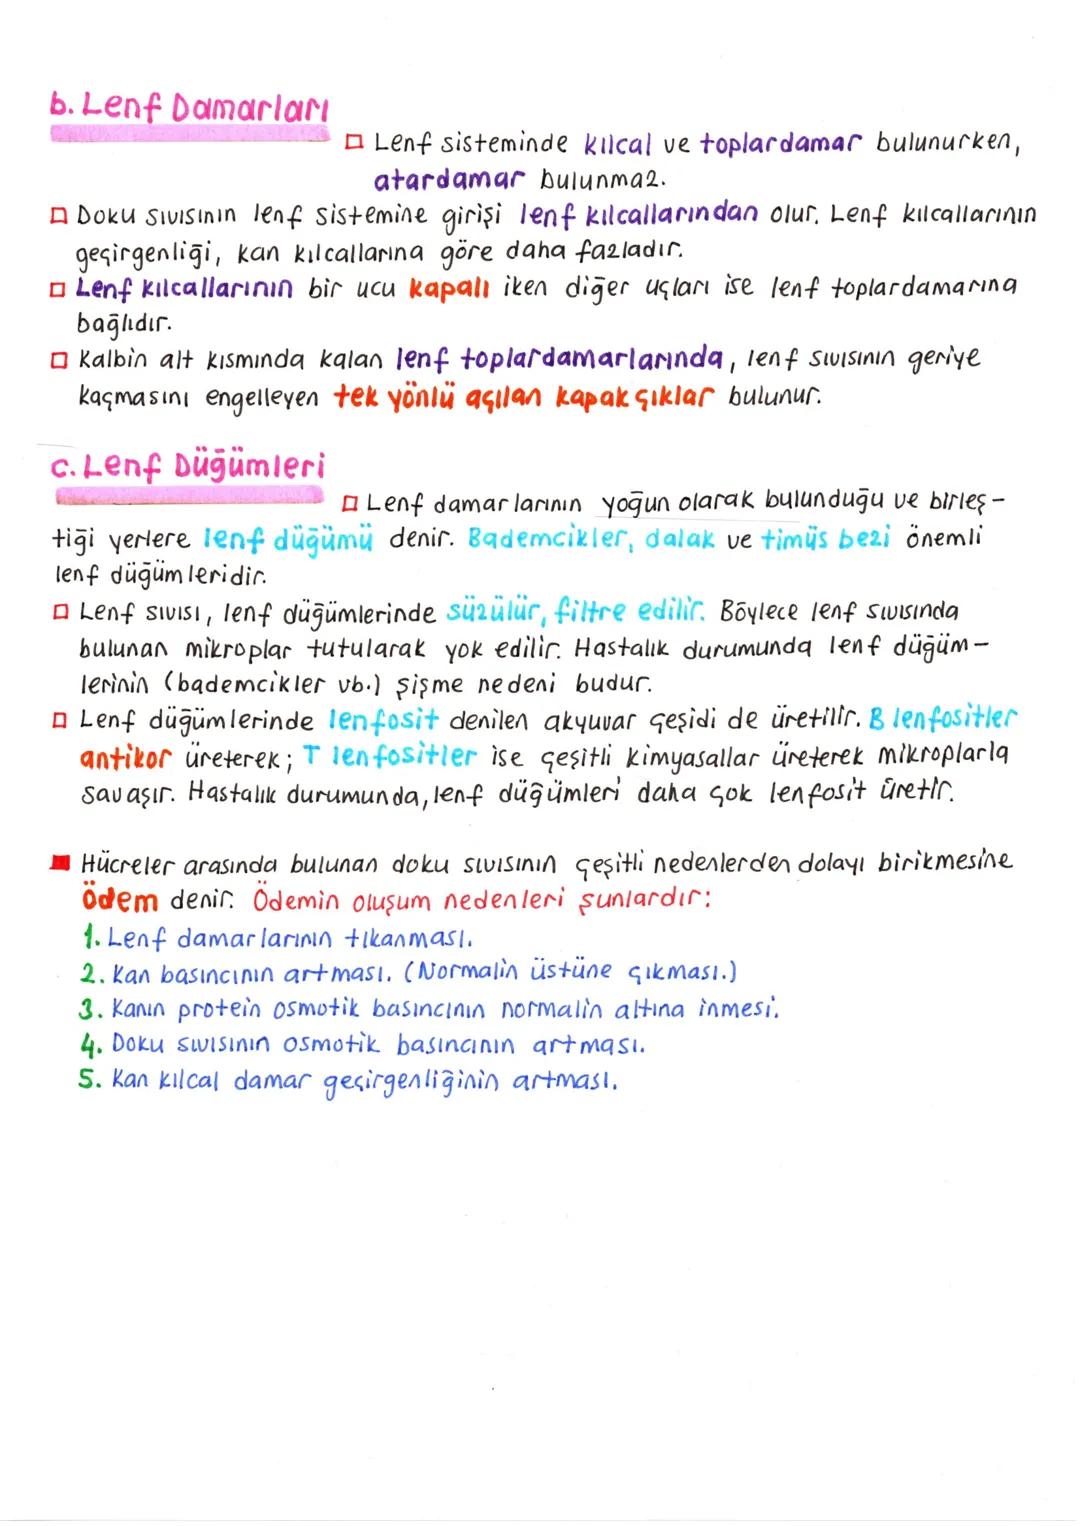 b. Lenf Damarları
Lenf sisteminde kılcal ve toplardamar bulunurken,
atardamar bulunmaz.
Doku sıvısının lenf sistemine girişi lenf kılcallarından olur. Lenf kılcallarının
geçirgenliği, kan kılcallarına göre daha fazladır.
Lenf kılcallarının bir ucu kapalı iken diğer uçları ise lenf toplardamarına
bağlıdır.
Kalbin alt kısmında kalan lenf toplardamarlarında, lenf sıvısının geriye
kaçmasını engelleyen tek yönlü açılan kapakçıklar bulunur.
c. Lenf Düğümleri
Lenf damarlarının yoğun olarak bulunduğu ve birleş-
tiği yerlere lenf düğümü denir. Bademcikler, dalak ve timüs bezi önemli
lenf düğümleridir.
Lenf sıvısı, lenf düğümlerinde süzülür, filtre edilir. Böylece lenf sıvısında
bulunan mikroplar tutularak yok edilir. Hastalık durumunda lenf düğüm-
lerinin (bademcikler vb.) şişme nedeni budur.
Lenf düğümlerinde lenfosit denilen akyuvar çeşidi de üretilir. B lenfositler
antikor üreterek; T lenfositler ise çeşitli kimyasallar üreterek mikroplarla
savaşır. Hastalık durumunda, lenf düğümleri daha çok lenfosit üretir.
Hücreler arasında bulunan doku sıvısının çeşitli nedenlerden dolayı birikmesine
Ödem denir. Ödemin oluşum nedenleri şunlardır:
1. Lenf damarlarının tıkanması.
2. Kan basıncının artması. (Normalin üstüne çıkması.)
3. Kanın protein osmotik basıncının normalin altına inmesi.
4. Doku sıvısının osmotik basıncının artması.
5. Kan kılcal damar geçirgenliğinin artması.